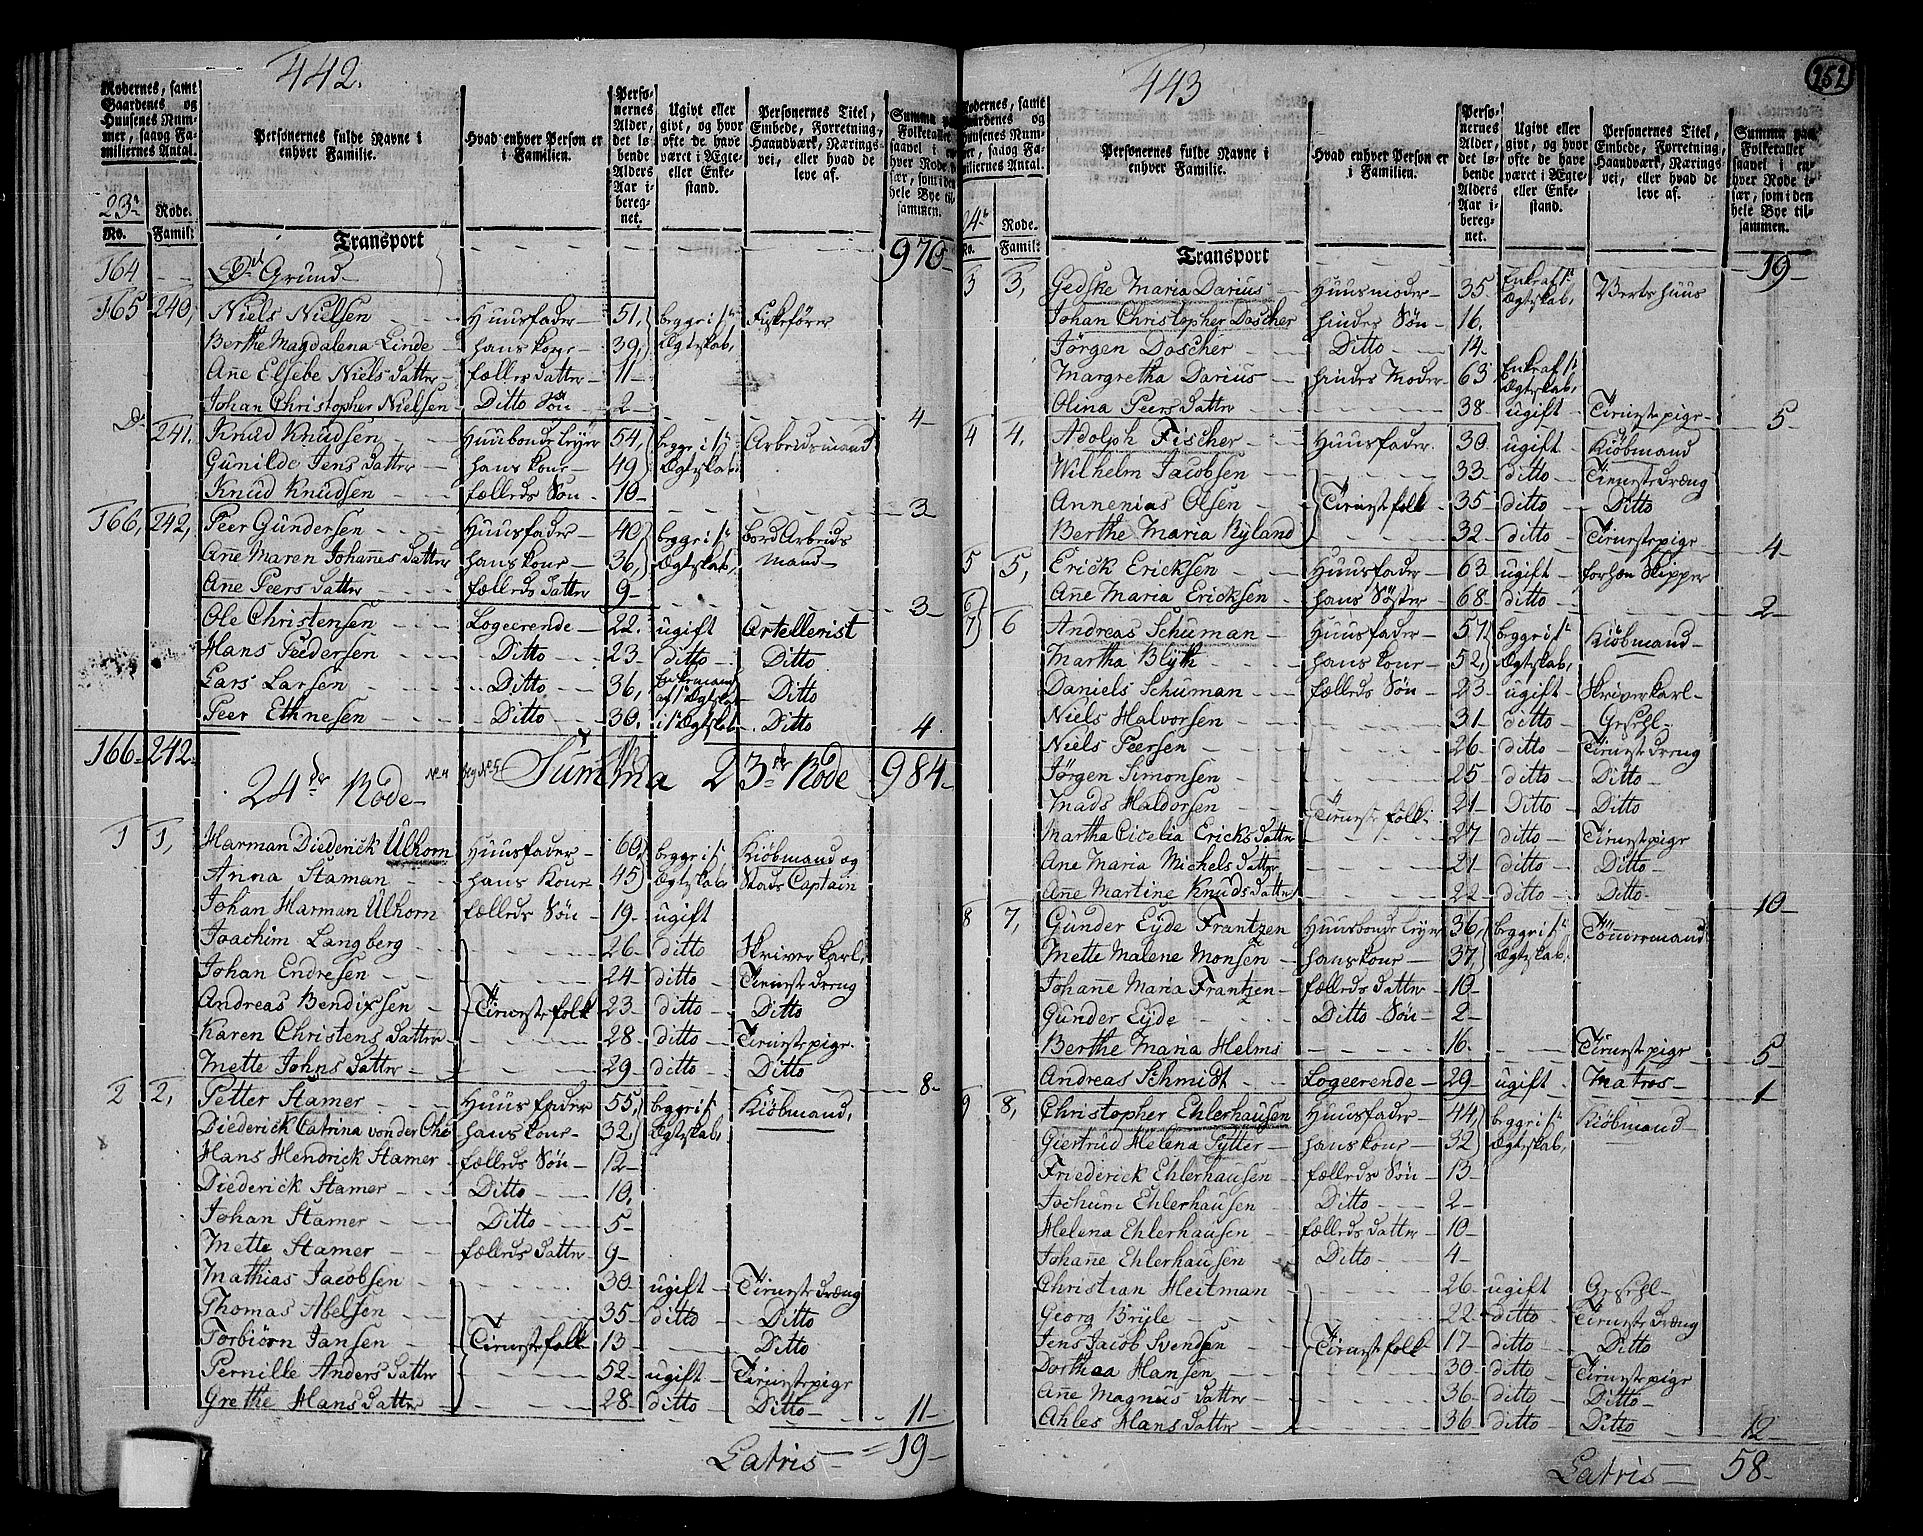 442.
Rodernes, samt Gaardenes og Huusenes Nummer, saavg Familiernes Antal.
Personernes fulde Navne i enhver Familie.
Hvad enhver Person er i Familien.
Personernes Alder, det løbende Alders Aar iberegnet.
Ugivt eller givt, og hvor ofte de have været i Ægte- eller Enkestand.
Personernes Titel, Embede, Forretning, Haandværk, Næringsvei, eller hvad de leve af.
Summa paa Folketallet saavel i enhver Rode især, som i den hele Bye tilsammen.
23de Rode.
No. Famil:
Transport 970
164 Do Grund
165 240, Niels Nielsen Huusfader 51, begge i 1ste Fiskefører
Berthe Magdalena Linde hans kone 39, Ægteskab,
Ane Elsebe Nielsdatter fælles datter 11
Johan Christopher Nielsen Ditto Søn 2 4
Do 241. Knud Knudsen Huusbonde leyer 54, begge i 1ste Arbeidsmand
Gunilde Jensdatter hans kone 49 Ægteskab
Knud Knudsen fælleds Søn 10 3
166, 242, Peer Gundersen Huusfader 40 begge i 1ste Bord Arbeids
Ane Maren Johannesdatter hans kone 36, Ægteskab, mand
Ane Peersdatter fælleds datter 9 3
Ole Christensen Logeerende 22. ugift Artellerist
Hans Pedersen Ditto 23 ditto Ditto
Lars Larsen Ditto 36, Enkemand af 1ste Ægteskab Ditto
Peer Ethnesen Ditto 30. i 1ste Ægteskab Ditto 4
166 242 Summa 23de Rode 984
24de Rode
1 1, Harman Diederick Ulhorn Huusfader 60, begge i 1ste Kiöbmand og
Anna Staman hans Kone 45 Ægteskab Stads Captain
Johan Harman Ulhorn fælleds Søn 19 ugift
Joachim Langberg 26 ditto Skriverkarl,
Johan Endresen 24 ditto Tieneste dreng
Andreas Bendixsen Tieneste folk 23 ditto Ditto
Karen Christensdatter 28 ditto Tieneste pige
Mette Johnsdatter 29 ditto Ditto 8
2 2, Petter Stamer Huusfader 55, begge i 1ste Kiöbmand,
Diederick Catrina von der Ohe hans kone 32, Ægteskab,
Hans Hendrick Stamer fælleds Søn 12
Diederick Stamer Ditto 10,
Johan Stamer Ditto 5
Mette Stamer fælleds datter 9
Mathias Jacobsen 30 ugift Tieneste dræng
Thomas Abelsen 35 ditto Ditto
Torbiörn Jansen Tieneste folk 13 Ditto
Pernille Andersdatter 52 ugift Tieneste pige
Grethe Hansdatter 28 ditto Ditto 11
Latris 19
443
252
Rodernes, samt Gaardenes og Huusenes Nummer, saavg Familiernes Antal.
Personernes fulde Navne i enhver Familie.
Hvad enhver Person er i Familien.
Personernes Alder, det løbende Alders Aar iberegnet.
Ugivt eller givt, og hvor ofte de have været i Ægte- eller Enkestand.
Personernes Titel, Embede, Forretning, Haandværk, Næringsvei, eller hvad de leve af.
Summa paa Folketallet saavel i enhver Rode især, som i den hele Bye tilsammen.
24de Rode.
No. Famil:
Transport 19
3 3, Gedske Maria Darius Huusmoder 35 Enke af 1ste Ægteskab, Vertshuus
Johan Christopher Doscher hindes Søn 16.
Jørgen Doscher Ditto 14
Margretha Darius hindes Moder 63 Enke af 1ste Ægteskab,
Olina Peersdatter 38 ugift Tieneste pige 5
4 4. Adolph Fischer Huusfader 30 ugift Kiöbmand
Wilhelm Jacobsen 33 ditto Tieneste dræng
Annenias Olsen Tieneste folk 35 ditto Ditto
Berthe Maria Ryland 32 ditto Tieneste pige 4
5 5, Erick Ericksen Huusfader 63 ugift forhen Skipper
Ane Maria Ericksen hans Søster 68 ditto 2
6 7 6 Andreas Schuman Huusfader 57 begge i 1ste Kiöbmand
Martha Blyth hans kone 52, Ægteskab,
Daniels Schuman fælleds Søn 23 ugift Skriverkarl
Niels Halvorsen 31 ditto Gesehl
Niels Peersen 26 ditto Tieneste dreng
Jørgen Simonsen 25 ditto Ditto
Mads Haldorsen Tieneste folk 21 Ditto Ditto
Martha Cicelia Ericksdatter 27 ditto Tieneste pige
Ane Maria Michelsdatter 21 ditto Ditto
Ane Martine Knudsdatter 22 ditto Ditto 10
8 7, Gunder Eyde Frantzen Huusbonde leyer 36, begge i 1ste Tömmermand
Mette Malene Monsen hans kone 37, Ægteskab,
Johane Maria Frantzen fælleds datter 10
Gunder Eyde Ditto Søn 2
Berthe Maria Helms 16. Tieneste pige 5
Andreas Schmidt Logeerende 29 ugift Matros 1
9 8, Christopher Ehlerhausen Huusfader 44, begge i 1ste Kiöbmand
Giertrud Helena Sytter hans kone 32 Ægteskab,
Friederick Ehlerhausen fælleds Søn 13
Jochum Ehlerhausen Ditto 2
Helena Ehlerhausen fælleds datter 10
Johane Ehlerhausen Ditto 4
Christian Heitman 26 ugift Gesehl
Georg Bryle 22 ditto Tieneste dræng
Jens Jacob Svendsen Tieneste folk 17 ditto Ditto
Dorthea Hansen 30 ditto Tieneste pige
Ane Magnus datter 36 ditto Ditto
Ahles Hansdatter 36 ditto Ditto 12
Latris 58